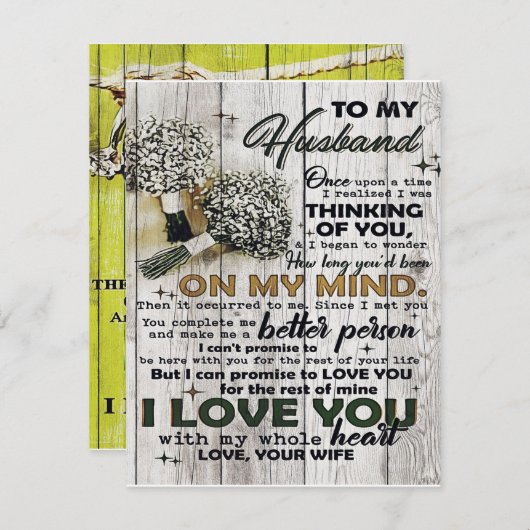 TO MY
Husband
Once upon a time
I realized I was
THINKING
OF YOU,
& I began to wonder
How long you'd been
ON MY MIND.
Then it occurred to me. Since I met you
You complete me
and make me a better person
I can't promise to
be here with you for the rest of your life
But I can promise to LOVE YOU
for the rest of mine
I LOVE YOU
with my whole heart
LOVE, YOUR WIFE
THE
I